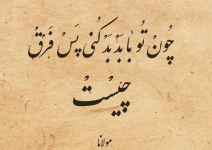 چون تو با بَد بَد کنی پَس فَرق
چیست
مولانا